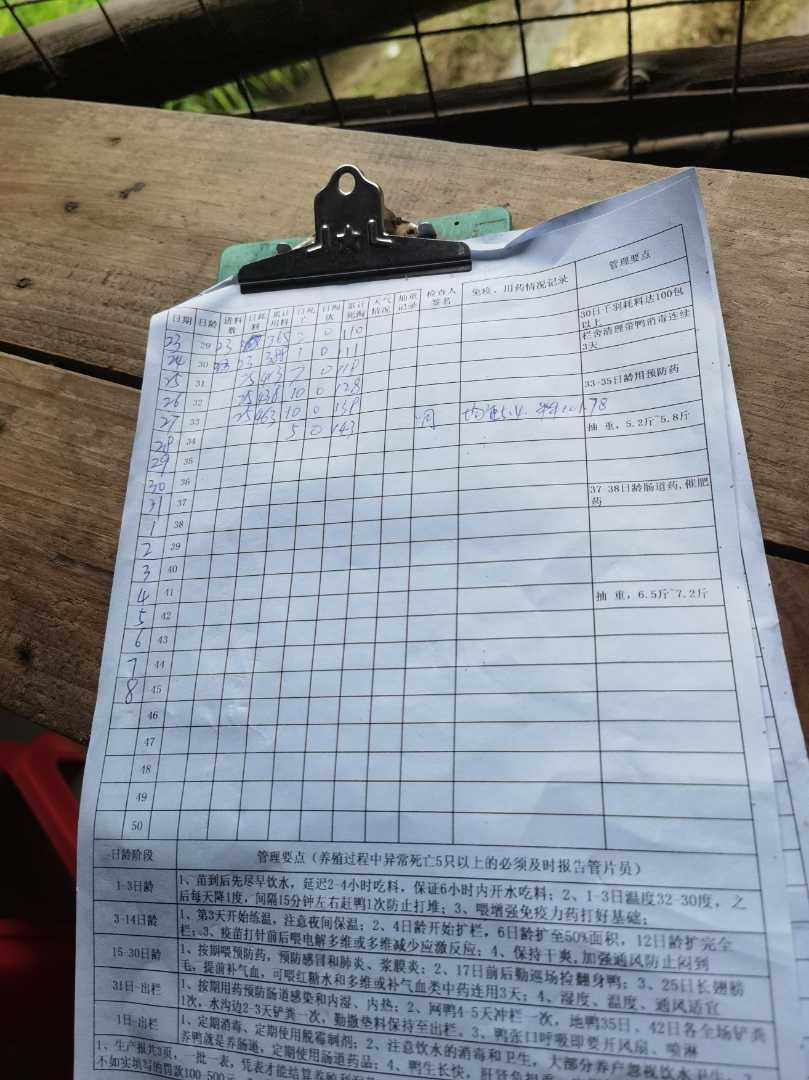 日期 日龄 进料数 日耗料 累计用料 日死亡 日淘汰 累计死淘 天气情况 抽重记录 检查人签名 免疫、用药情况记录 管理要点
23 29 23 365 2 0 110 30日千羽耗料达100包以上
24 30 23 1 0 111 栏舍清理带鸭消毒连续3天
25 31 25 413 7 0 118
26 32 25 438 10 0 128 33-35日龄用预防药
27 33 25 463 10 0 138
28 34 5 0 143 抽 重,5.2斤~5.8斤
29 35
30 36
31 37 37-38日龄肠道药,催肥药
1 38
2 39
3 40
4 41 抽 重,6.5斤~7.2斤
5 42
6 43
7 44
8 45
46
47
48
49
50
日龄阶段 管理要点(养殖过程中异常死亡5只以上的必须及时报告管片员)
1-3日龄 1、苗到后先尽早饮水,延迟2-4小时吃料,保证6小时内开水吃料;2、1-3日温度32-30度,之
后每天降1度,间隔15分钟左右赶鸭1次防止打堆;3、喂增强免疫力药打好基础;
3-14日龄 1、第3天开始练温,注意夜间保温;2、4日龄开始扩栏,6日龄扩至50%面积,12日龄扩完全
栏;3、疫苗打针前后喂电解多维或多维减少应激反应;4、保持干爽,加强通风防止闷到
15-30日龄 1、按期喂预防药,预防感冒和肺炎、浆膜炎;2、17日前后勤巡场捡翻身鸭;3、25日长翅膀
毛,提前补气血,可喂红糖水和多维或补气血类中药连用3天;4、湿度、温度、通风适宜
31日-出栏 1、按期用药预防肠道感染和内湿、内热;2、网鸭4-5天冲栏一次,地鸭35日、42日各全场铲粪
1次,水沟边2-3天铲粪一次,勤撒垫料保持至出栏。3、鸭张口呼吸即要开风扇、喷淋
1日-出栏 1、定期消毒、定期使用脱霉制剂;2、注意饮水的消毒和卫生,大部分养户忽视饮水卫生;3、
养鸭就是养肠道,定期使用肠道药品;4、鸭生长快,肝肾负担重
1、生产报共3页,一批一表,凭表才能结算养殖利
不如实填写的罚款100-500元